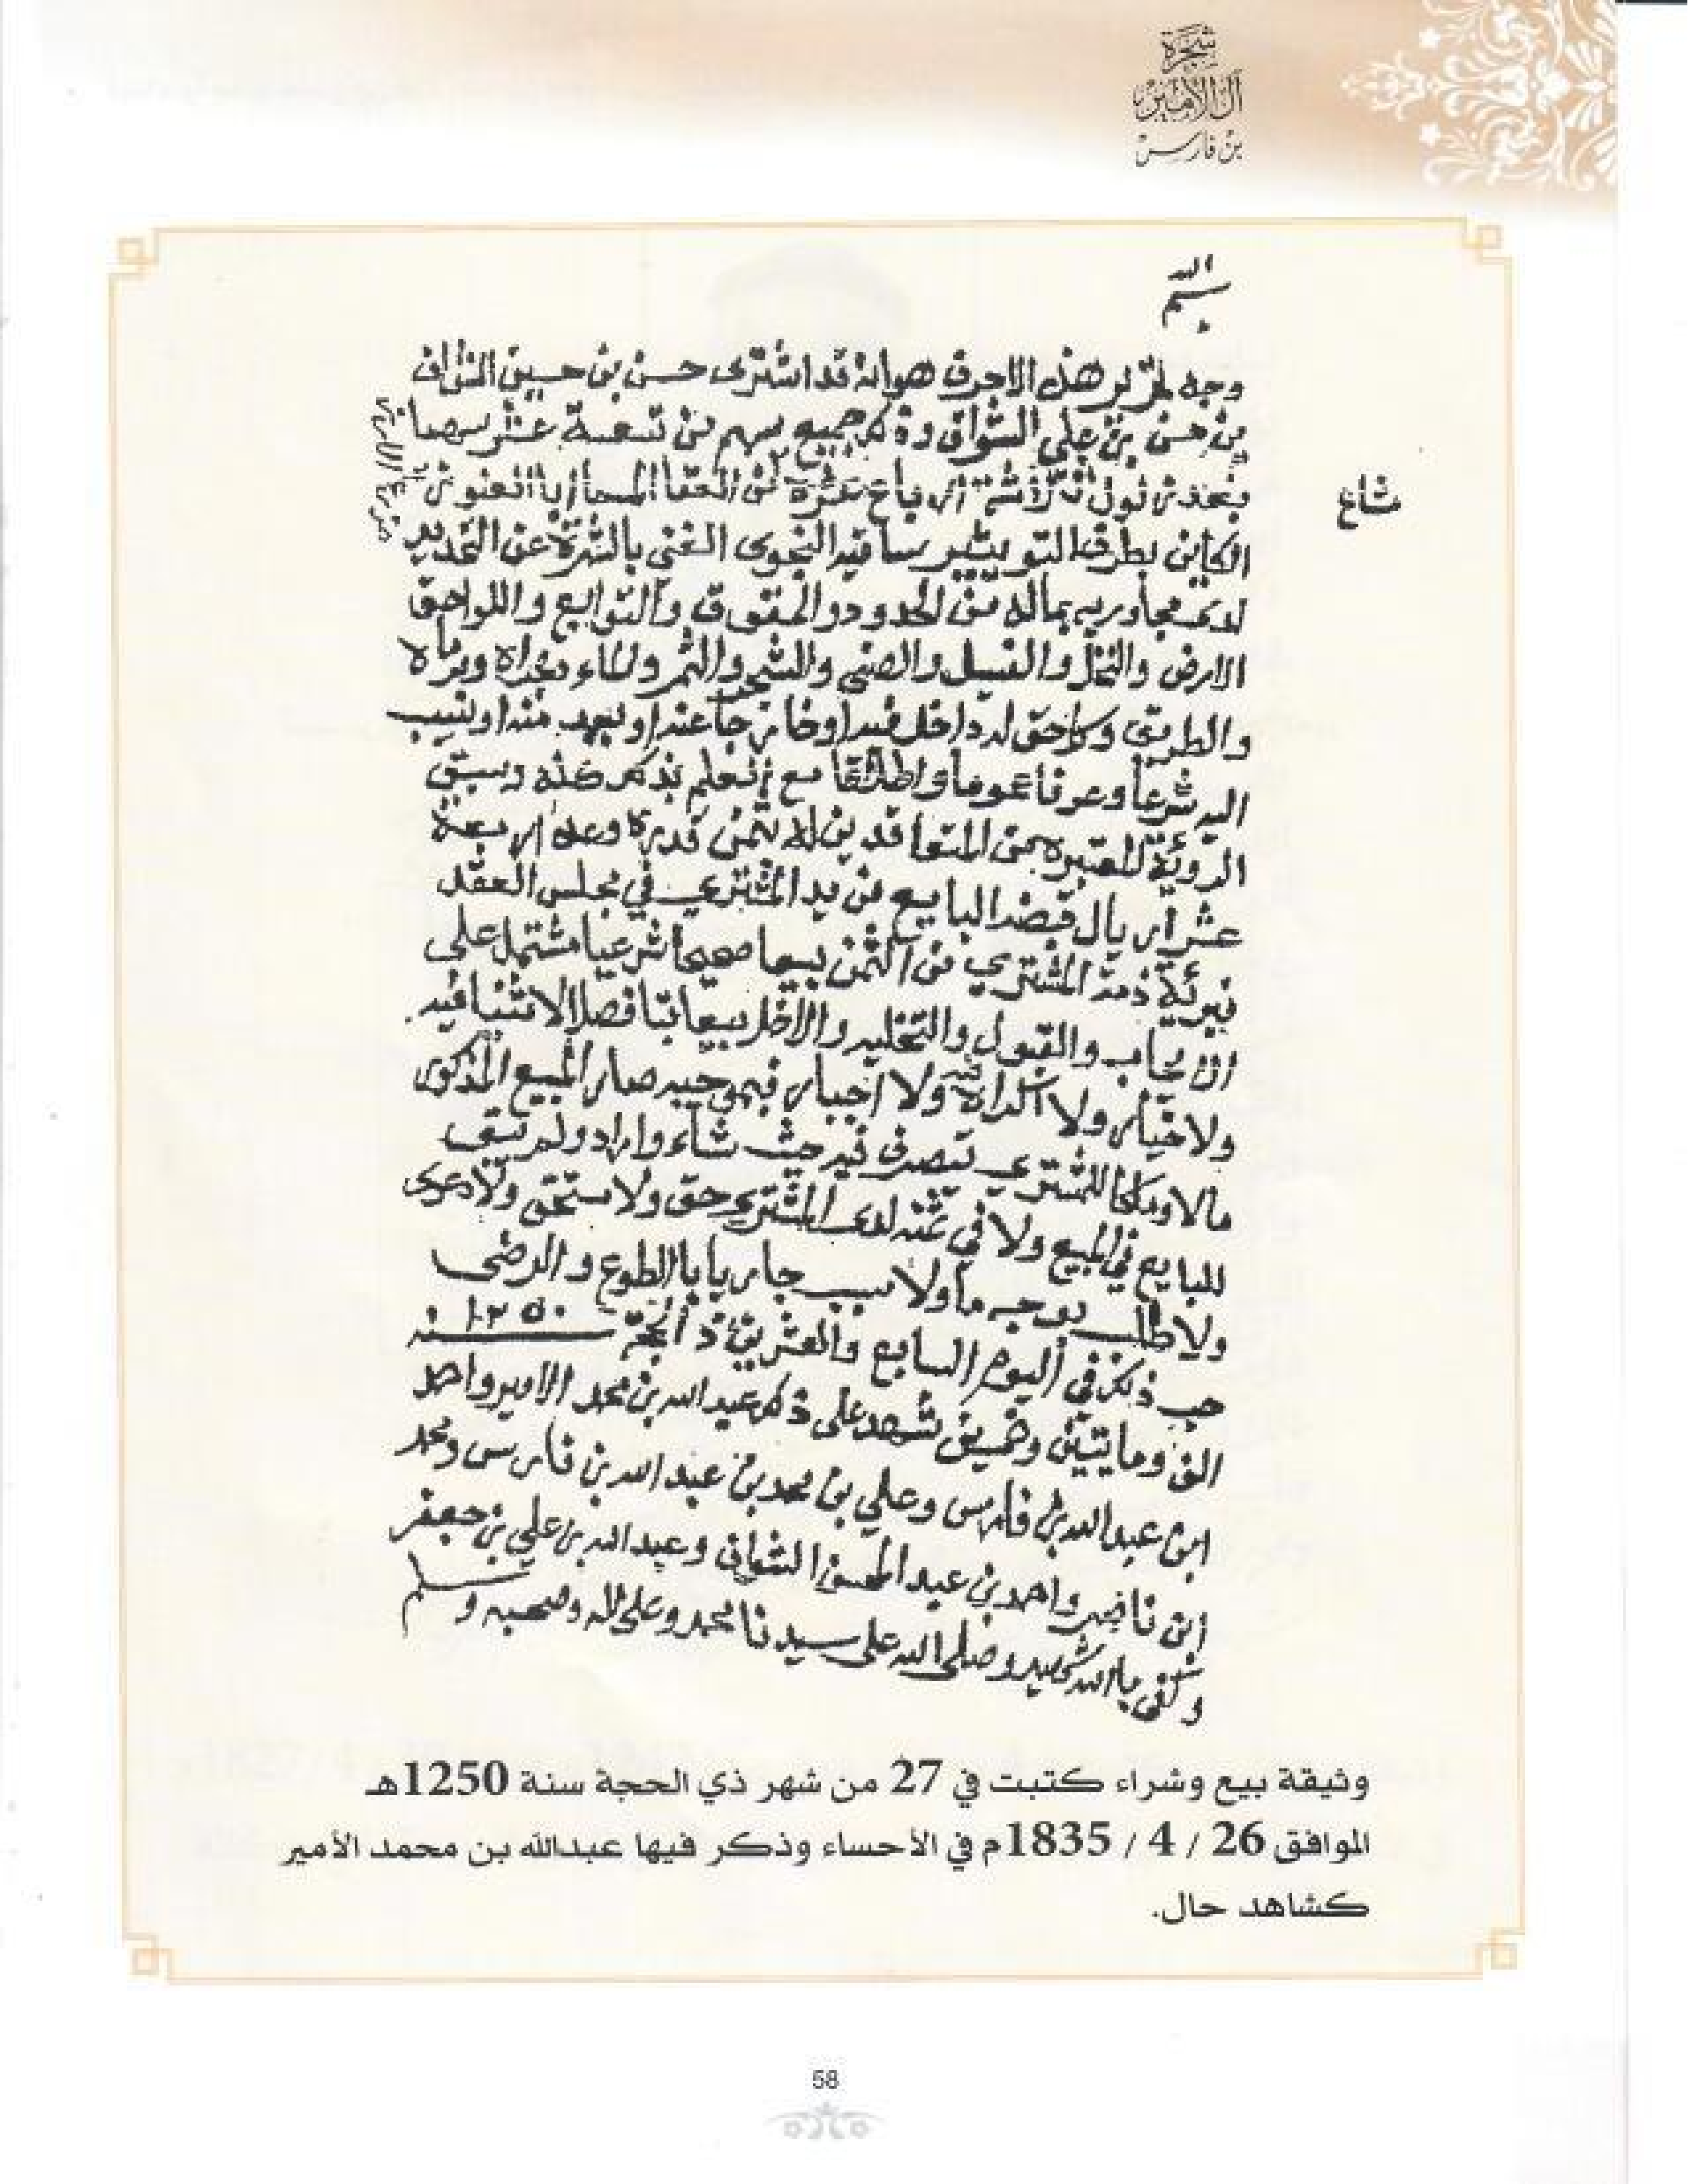 شجرة
آل الأمير
بن فارس
بسم الله
وجه تحرير هذه الاحرف هو انه قد اشترى حسن بن حسين الشواف
من حسن بن علي الشواف وذلك جميع سهم من تسعة عشر سهما
مشاع
الكاين بطرف التويثير ساقيه النجوى الغني بالشهرة عن التحديد
لدى مجاوريه بماله من الحدود والحقوق والتوابع واللواحق
الارض والنخل والفسيل والصني والشجر والثمر والماء ومجراه ومرماه
والطريق وكل حق له داخل فيه او خارجا عنه او بعد منه او نسب
اليه شرعا وعرفا عموما واطلاقا مع العلم بذلك منه وسبق
الروية المعتبره من المتعاقدين له بثمن قدره وعده اربعة
عشر اريال قبضه البايع من يد المشتري في مجلس العقد
فبرئة ذمة المشتري من الثمن بيعا صحيحا شرعيا مشتمل على
الايجاب والقبول والتخليه والاخل بيعا بتا فصلا لا ثنيا فيه
ولا خيار ولا اكراه ولا اجبار فبموجبه صار المبيع المذكور
مالا وملكا للمشتري يتصرف فيه حيث شاء واراد ولم يبق
للبايع في المبيع ولا في ثمنه لدى المشتري حق ولا مستحق ولا دعوى
ولا طلب بوجه ما ولا سبب جاريا بالطوع والرضى
حرر ذلك في اليوم السابع والعشرين ذ الحجة سنه ١٢٥٠
الف ومايتين وخمسين شهد على ذلك عبد الله بن محمد الامير واحمد
ابن عبد الله بن فارس وعلي بن محمد بن عبد الله بن فارس ومحمد
ابن ناصر واحمد بن عبد المحسن الشواف وعبد الله بن علي بن جعفر
وكفى بالله شهيد وصلى الله على سيدنا محمد وعلى اله وصحبه وسلم
وثيقة بيع وشراء كتبت في 27 من شهر ذي الحجة سنة 1250هـ
الموافق 26 / 4 / 1835م في الأحساء وذكر فيها عبدالله بن محمد الأمير
كشاهد حال.
58